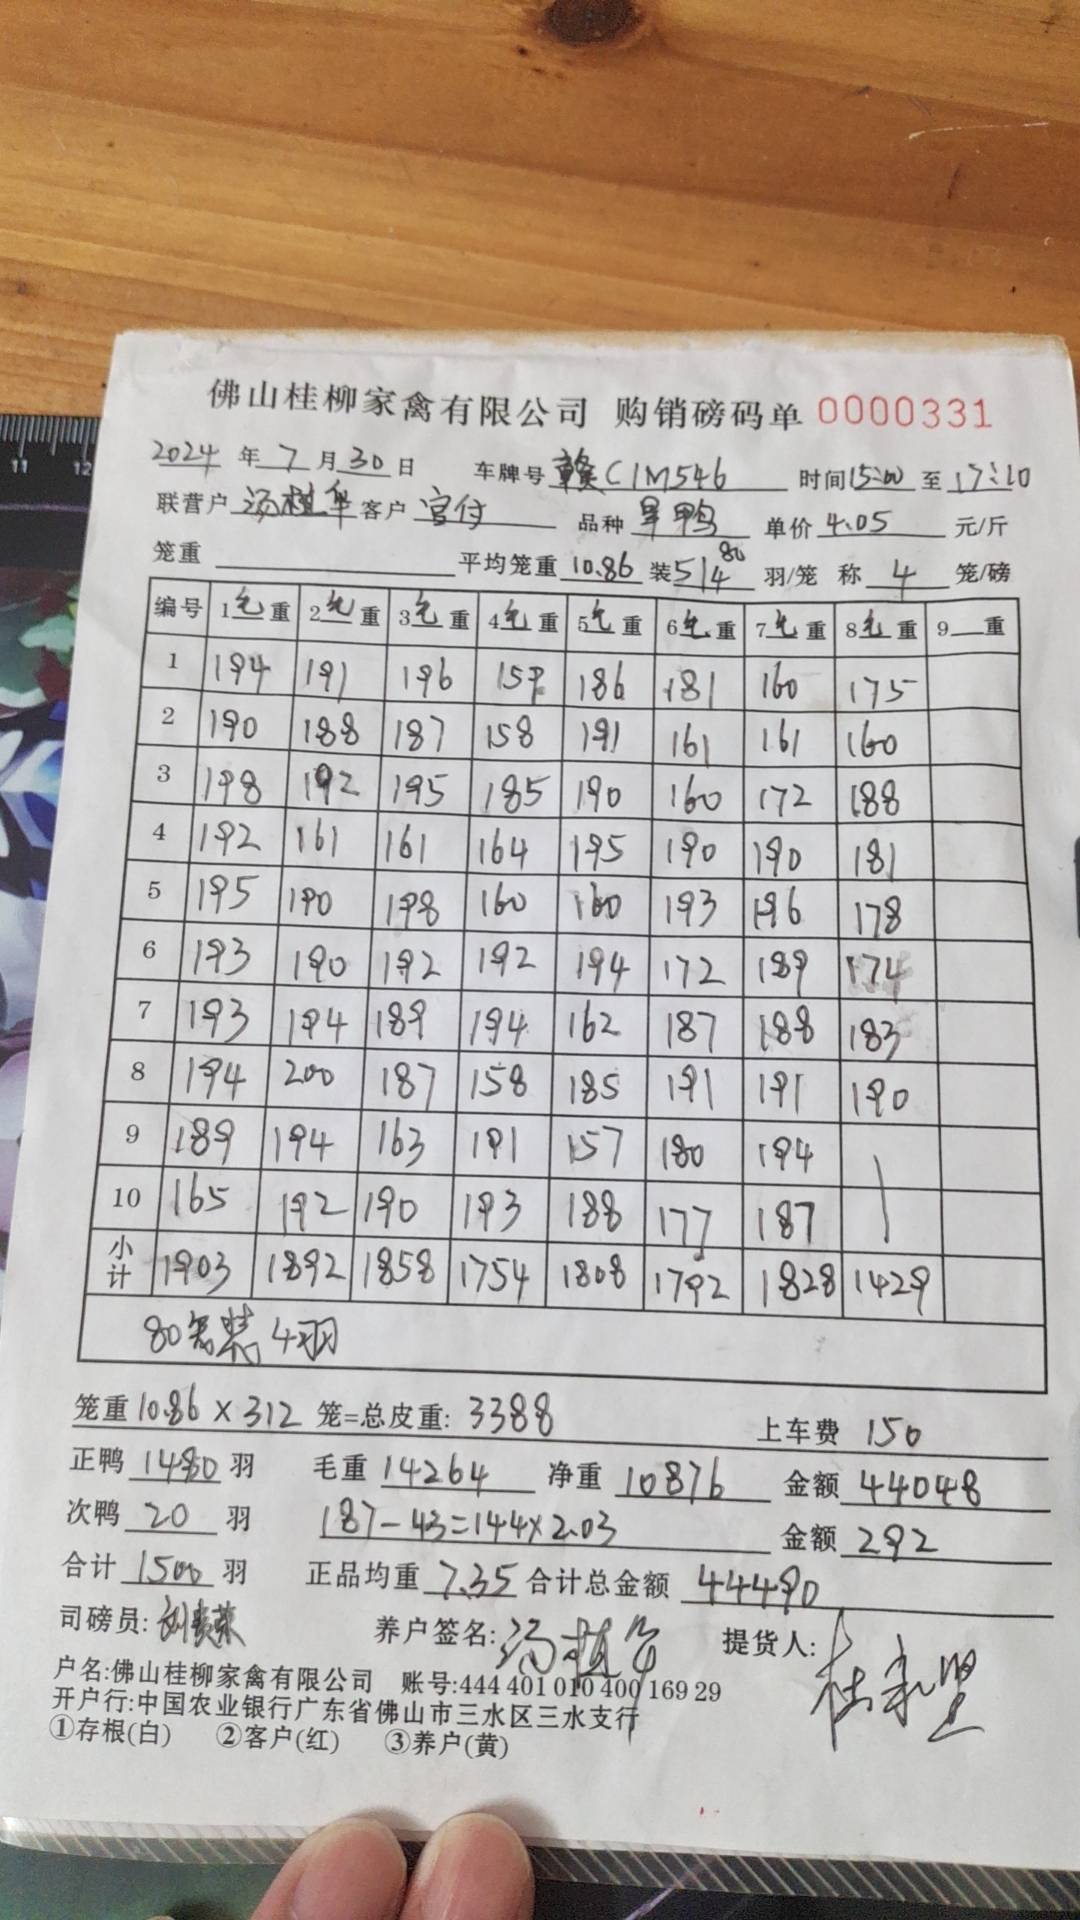 佛山桂柳家禽有限公司 购销磅码单 0000331
2024 年 7 月 30 日 车牌号 赣C1M546 时间 15:00 至 17:10
联营户 汤植华 客户 宫付 品种 旱鸭 单价 4.05 元/斤
笼重 平均笼重 10.86 装 5/4 80 羽/笼 称 4 笼/磅
编号 1毛重 2毛重 3毛重 4毛重 5毛重 6毛重 7毛重 8毛重 9 重
1 194 191 196 159 186 181 160 175
2 190 188 187 158 191 161 161 160
3 198 192 195 185 190 160 172 188
4 192 161 161 164 195 190 190 181
5 195 190 198 160 160 193 196 178
6 193 190 192 192 194 172 189 174
7 193 194 189 194 162 187 188 183
8 194 200 187 158 185 191 191 190
9 189 194 163 191 157 180 194
10 165 192 190 193 188 177 187
小计 1903 1892 1858 1754 1808 1792 1828 1429
80笼装4羽
笼重 10.86 × 312 笼=总皮重: 3388 上车费 150
正鸭 1480 羽 毛重 14264 净重 10876 金额 44048
次鸭 20 羽 187-43=144×2.03 金额 292
合计 1500 羽 正品均重 7.35 合计总金额 44490
司磅员: 养户签名: 汤植华 提货人:
户名:佛山桂柳家禽有限公司 账号:444 401 010 400 169 29
开户行:中国农业银行广东省佛山市三水区三水支行
①存根(白) ②客户(红) ③养户(黄)
11 12